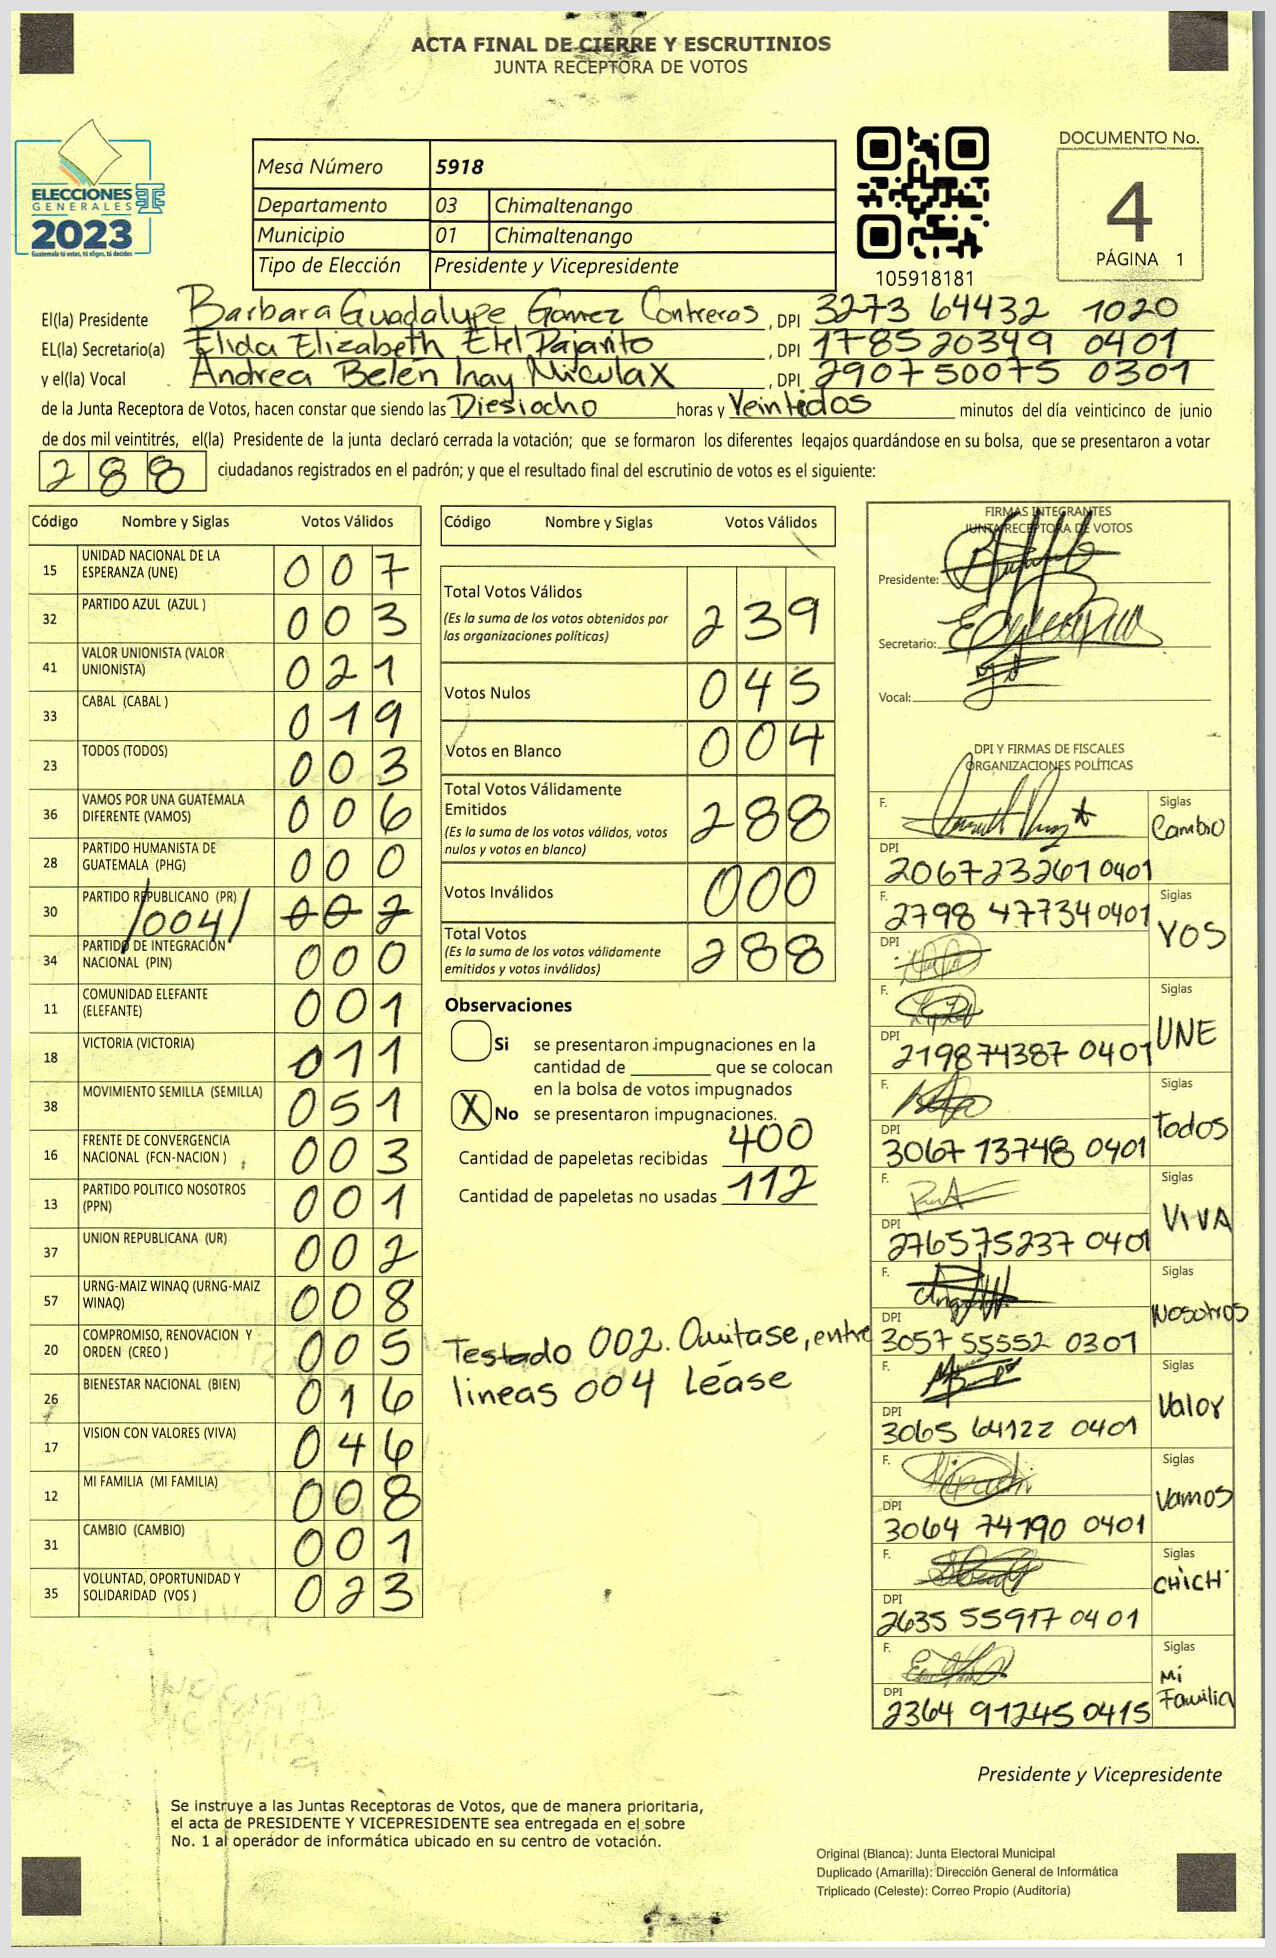 ACTA FINAL DE CIERRE Y ESCRUTINIOS
JUNTA RECEPTORA DE VOTOS
ELECCIONES
GENERALES
2023
Guatemala tú votas, tú eliges, tú decides
Mesa Número 5918
Departamento 03 Chimaltenango
Municipio 01 Chimaltenango
Tipo de Elección Presidente y Vicepresidente
105918181
DOCUMENTO No.
4
PÁGINA 1
El(la) Presidente Barbara Guadalupe Gamez Contreras, DPI 3273 64432 1020
EL(la) Secretario(a) Elida Elizabeth Etel Pajarito, DPI 1785 20349 0401
y el(la) Vocal Andrea Belén Inay Miculax, DPI 2907 50075 0301
de la Junta Receptora de Votos, hacen constar que siendo las Diesiocho horas y Veintidos minutos del día veinticinco de junio
de dos mil veintitrés, el(la) Presidente de la junta declaró cerrada la votación; que se formaron los diferentes legajos quardándose en su bolsa, que se presentaron a votar
288 ciudadanos registrados en el padrón; y que el resultado final del escrutinio de votos es el siguiente:
Código Nombre y Siglas Votos Válidos
15 UNIDAD NACIONAL DE LA ESPERANZA (UNE) 007
32 PARTIDO AZUL (AZUL ) 003
41 VALOR UNIONISTA (VALOR UNIONISTA) 021
33 CABAL (CABAL ) 019
23 TODOS (TODOS) 003
36 VAMOS POR UNA GUATEMALA DIFERENTE (VAMOS) 006
28 PARTIDO HUMANISTA DE GUATEMALA (PHG) 000
30 PARTIDO REPUBLICANO (PR) /004/ 002
34 PARTIDO DE INTEGRACION NACIONAL (PIN) 000
11 COMUNIDAD ELEFANTE (ELEFANTE) 001
18 VICTORIA (VICTORIA) 011
38 MOVIMIENTO SEMILLA (SEMILLA) 051
16 FRENTE DE CONVERGENCIA NACIONAL (FCN-NACION ) 003
13 PARTIDO POLITICO NOSOTROS (PPN) 001
37 UNION REPUBLICANA (UR) 002
57 URNG-MAIZ WINAQ (URNG-MAIZ WINAQ) 008
20 COMPROMISO, RENOVACION Y ORDEN (CREO ) 005
26 BIENESTAR NACIONAL (BIEN) 016
17 VISION CON VALORES (VIVA) 046
12 MI FAMILIA (MI FAMILIA) 008
31 CAMBIO (CAMBIO) 001
35 VOLUNTAD, OPORTUNIDAD Y SOLIDARIDAD (VOS ) 023
Código Nombre y Siglas Votos Válidos
Total Votos Válidos 239
(Es la suma de los votos obtenidos por
las organizaciones políticas)
Votos Nulos 045
Votos en Blanco 004
Total Votos Válidamente
Emitidos 288
(Es la suma de los votos válidos, votos
nulos y votos en blanco)
Votos Inválidos 000
Total Votos 288
(Es la suma de los votos válidamente
emitidos y votos inválidos)
Observaciones
Si se presentaron impugnaciones en la
cantidad de ________ que se colocan
en la bolsa de votos impugnados
X No se presentaron impugnaciones.
Cantidad de papeletas recibidas 400
Cantidad de papeletas no usadas 112
Testado 002. Omitase, entre
lineas 004 Léase
FIRMAS INTEGRANTES
JUNTA RECEPTORA DE VOTOS
Presidente:
Secretario:
Vocal:
DPI Y FIRMAS DE FISCALES
ORGANIZACIONES POLÍTICAS
F. Siglas Cambio
DPI 2067 23261 0401
F. 2798 47734 0401 Siglas VOS
DPI
F. Siglas UNE
DPI 2198 74387 0401
F. Siglas Todos
DPI 3067 13748 0401
F. Siglas VIVA
DPI 2765 75237 0401
F. Siglas Nosotros
DPI 3057 55552 0301
F. Siglas Valor
DPI 3065 64122 0401
F. Siglas Vamos
DPI 3064 74190 0401
F. Siglas CHICH
DPI 2635 55917 0401
F. Siglas Mi Familia
DPI 2364 91245 0415
Presidente y Vicepresidente
Se instruye a las Juntas Receptoras de Votos, que de manera prioritaria,
el acta de PRESIDENTE Y VICEPRESIDENTE sea entregada en el sobre
No. 1 al operador de informática ubicado en su centro de votación.
Original (Blanca): Junta Electoral Municipal
Duplicado (Amarilla): Dirección General de Informática
Triplicado (Celeste): Correo Propio (Auditoría)